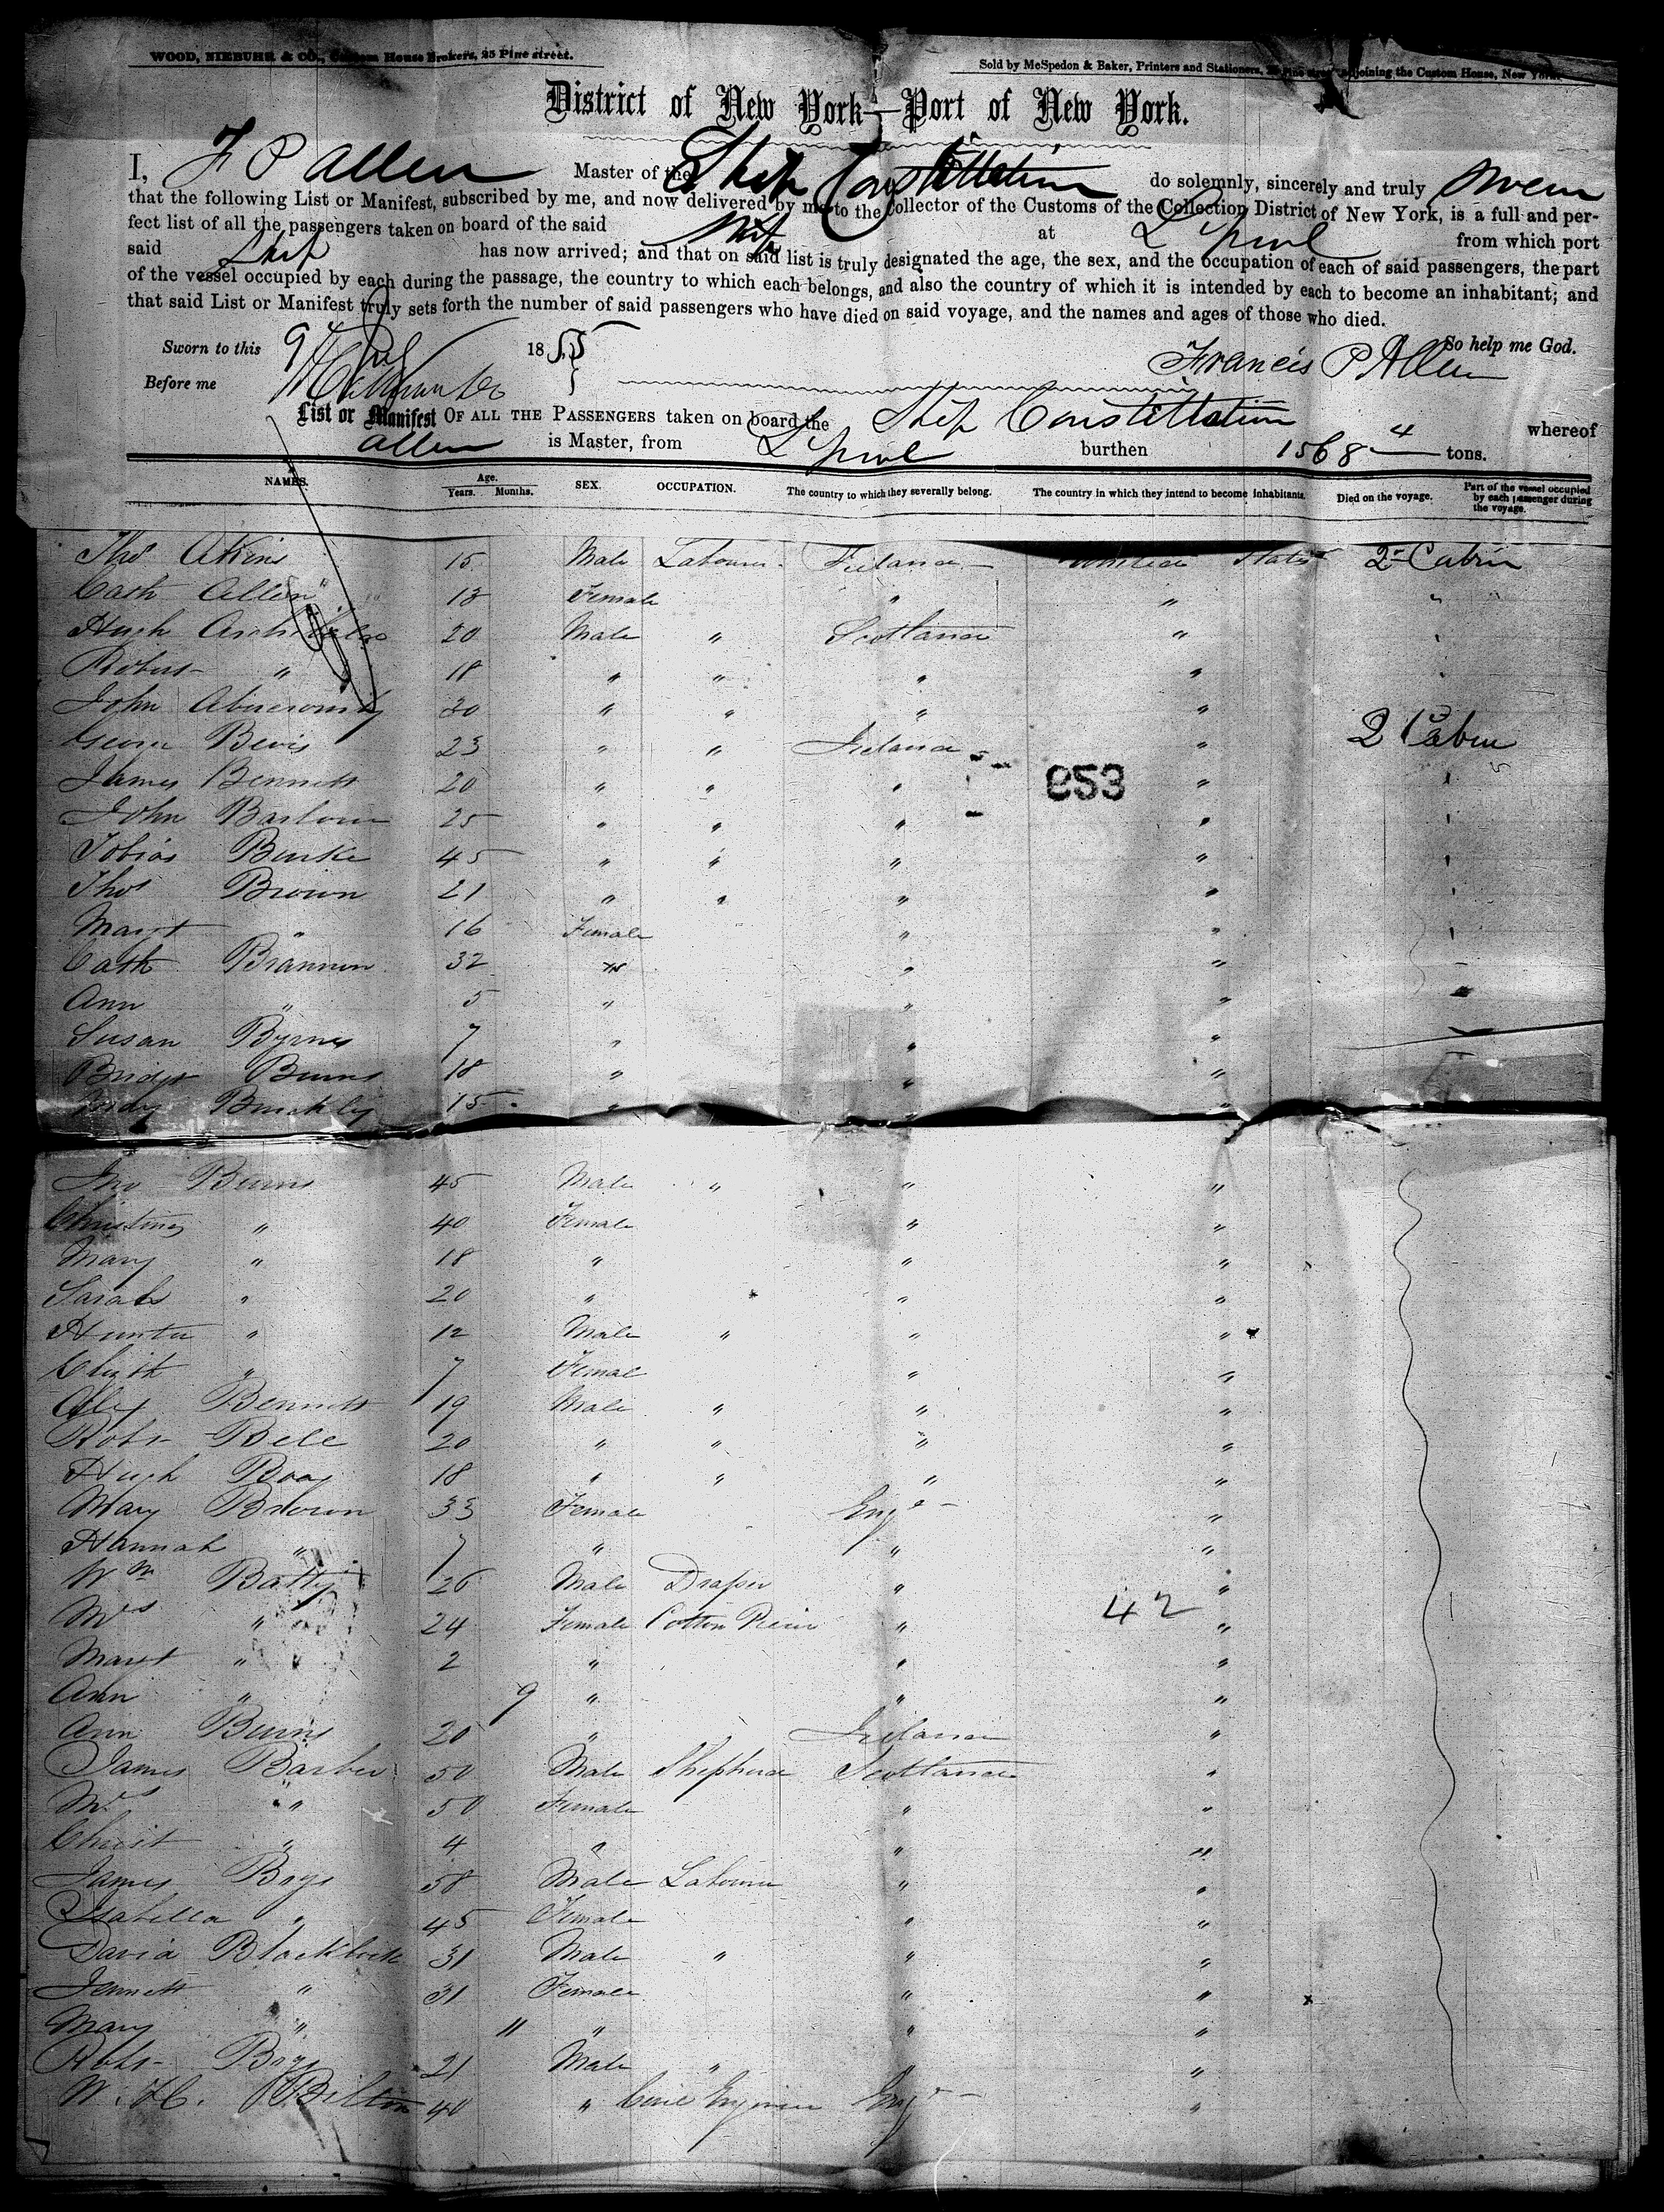 WOOD, NIEBUHR & CO., Custom House Brokers, 25 Pine street.
Sold by McSpedon & Baker, Printers and Stationers, 25 Pine street adjoining the Custom House, New York.
District of New York—Port of New York.
I, F P Allen Master of the Ship Constitution do solemnly, sincerely and truly swear
that the following List or Manifest, subscribed by me, and now delivered by me to the Collector of the Customs of the Collection District of New York, is a full and per-
fect list of all the passengers taken on board of the said Ship at L'pool from which port
said Ship has now arrived; and that on said list is truly designated the age, the sex, and the occupation of each of said passengers, the part
of the vessel occupied by each during the passage, the country to which each belongs, and also the country of which it is intended by each to become an inhabitant; and
that said List or Manifest truly sets forth the number of said passengers who have died on said voyage, and the names and ages of those who died.
So help me God.
Sworn to this 9 1855
Francis P Allen
Before me
List or Manifest OF ALL THE PASSENGERS taken on board the Ship Constitution whereof
Allen is Master, from L'pool burthen 1568 4 tons.
NAMES. Age. Years. Months. SEX. OCCUPATION. The country to which they severally belong. The country in which they intend to become inhabitants. Died on the voyage. Part of the vessel occupied by each passenger during the voyage.
Thos Atkins 15 Male Labourer Ireland United States 2nd Cabin
Cath Allen 18 Female " "
Hugh 20 Male " Scotland "
Robert " 18 " " " "
John Abercromby 30 " " " "
George Bevis 23 " " Ireland " 2 Cabin
James Bennett 20 " " " "
853
John Barlow 25 " " " "
Tobias Burke 45 " " " "
Thos Brown 21 " " " "
Margt " 16 Female " "
Cath Brannon 32 " " "
Ann " 5 " " "
Susan Byrnes 7 " " "
Bridgt Burns 18 " " "
Buckley 15 " " "
Jno Burns 45 Male " " "
" 40 Female " "
Mary " 18 " " "
Sarah " 20 " " "
Hunter " 12 Male " " "
" 7 Female " "
Alex Bennett 19 Male " " "
Robt Bell 20 " " " "
Hugh 18 " " " "
Mary Brown 33 Female Engd "
Hannah " 7 " " "
Wm Batty 26 Male Draper " "
Mrs " 24 Female Cotton " "
42
Margt " 2 " " "
Ann " 9 " " "
Ann Burns 20 " Ireland "
James Barber 50 Male Shepherd Scotland "
Mrs " 50 Female " "
Christ " 4 " " "
James Bays 58 Male Labourer " "
Isabella " 45 Female " "
David Blacklock 31 Male " " "
Jennett " 31 Female " "
Mary " 11 " " "
Robt Bays 21 Male " " "
W. H. Bilton 40 " Civil Engineer Engd "